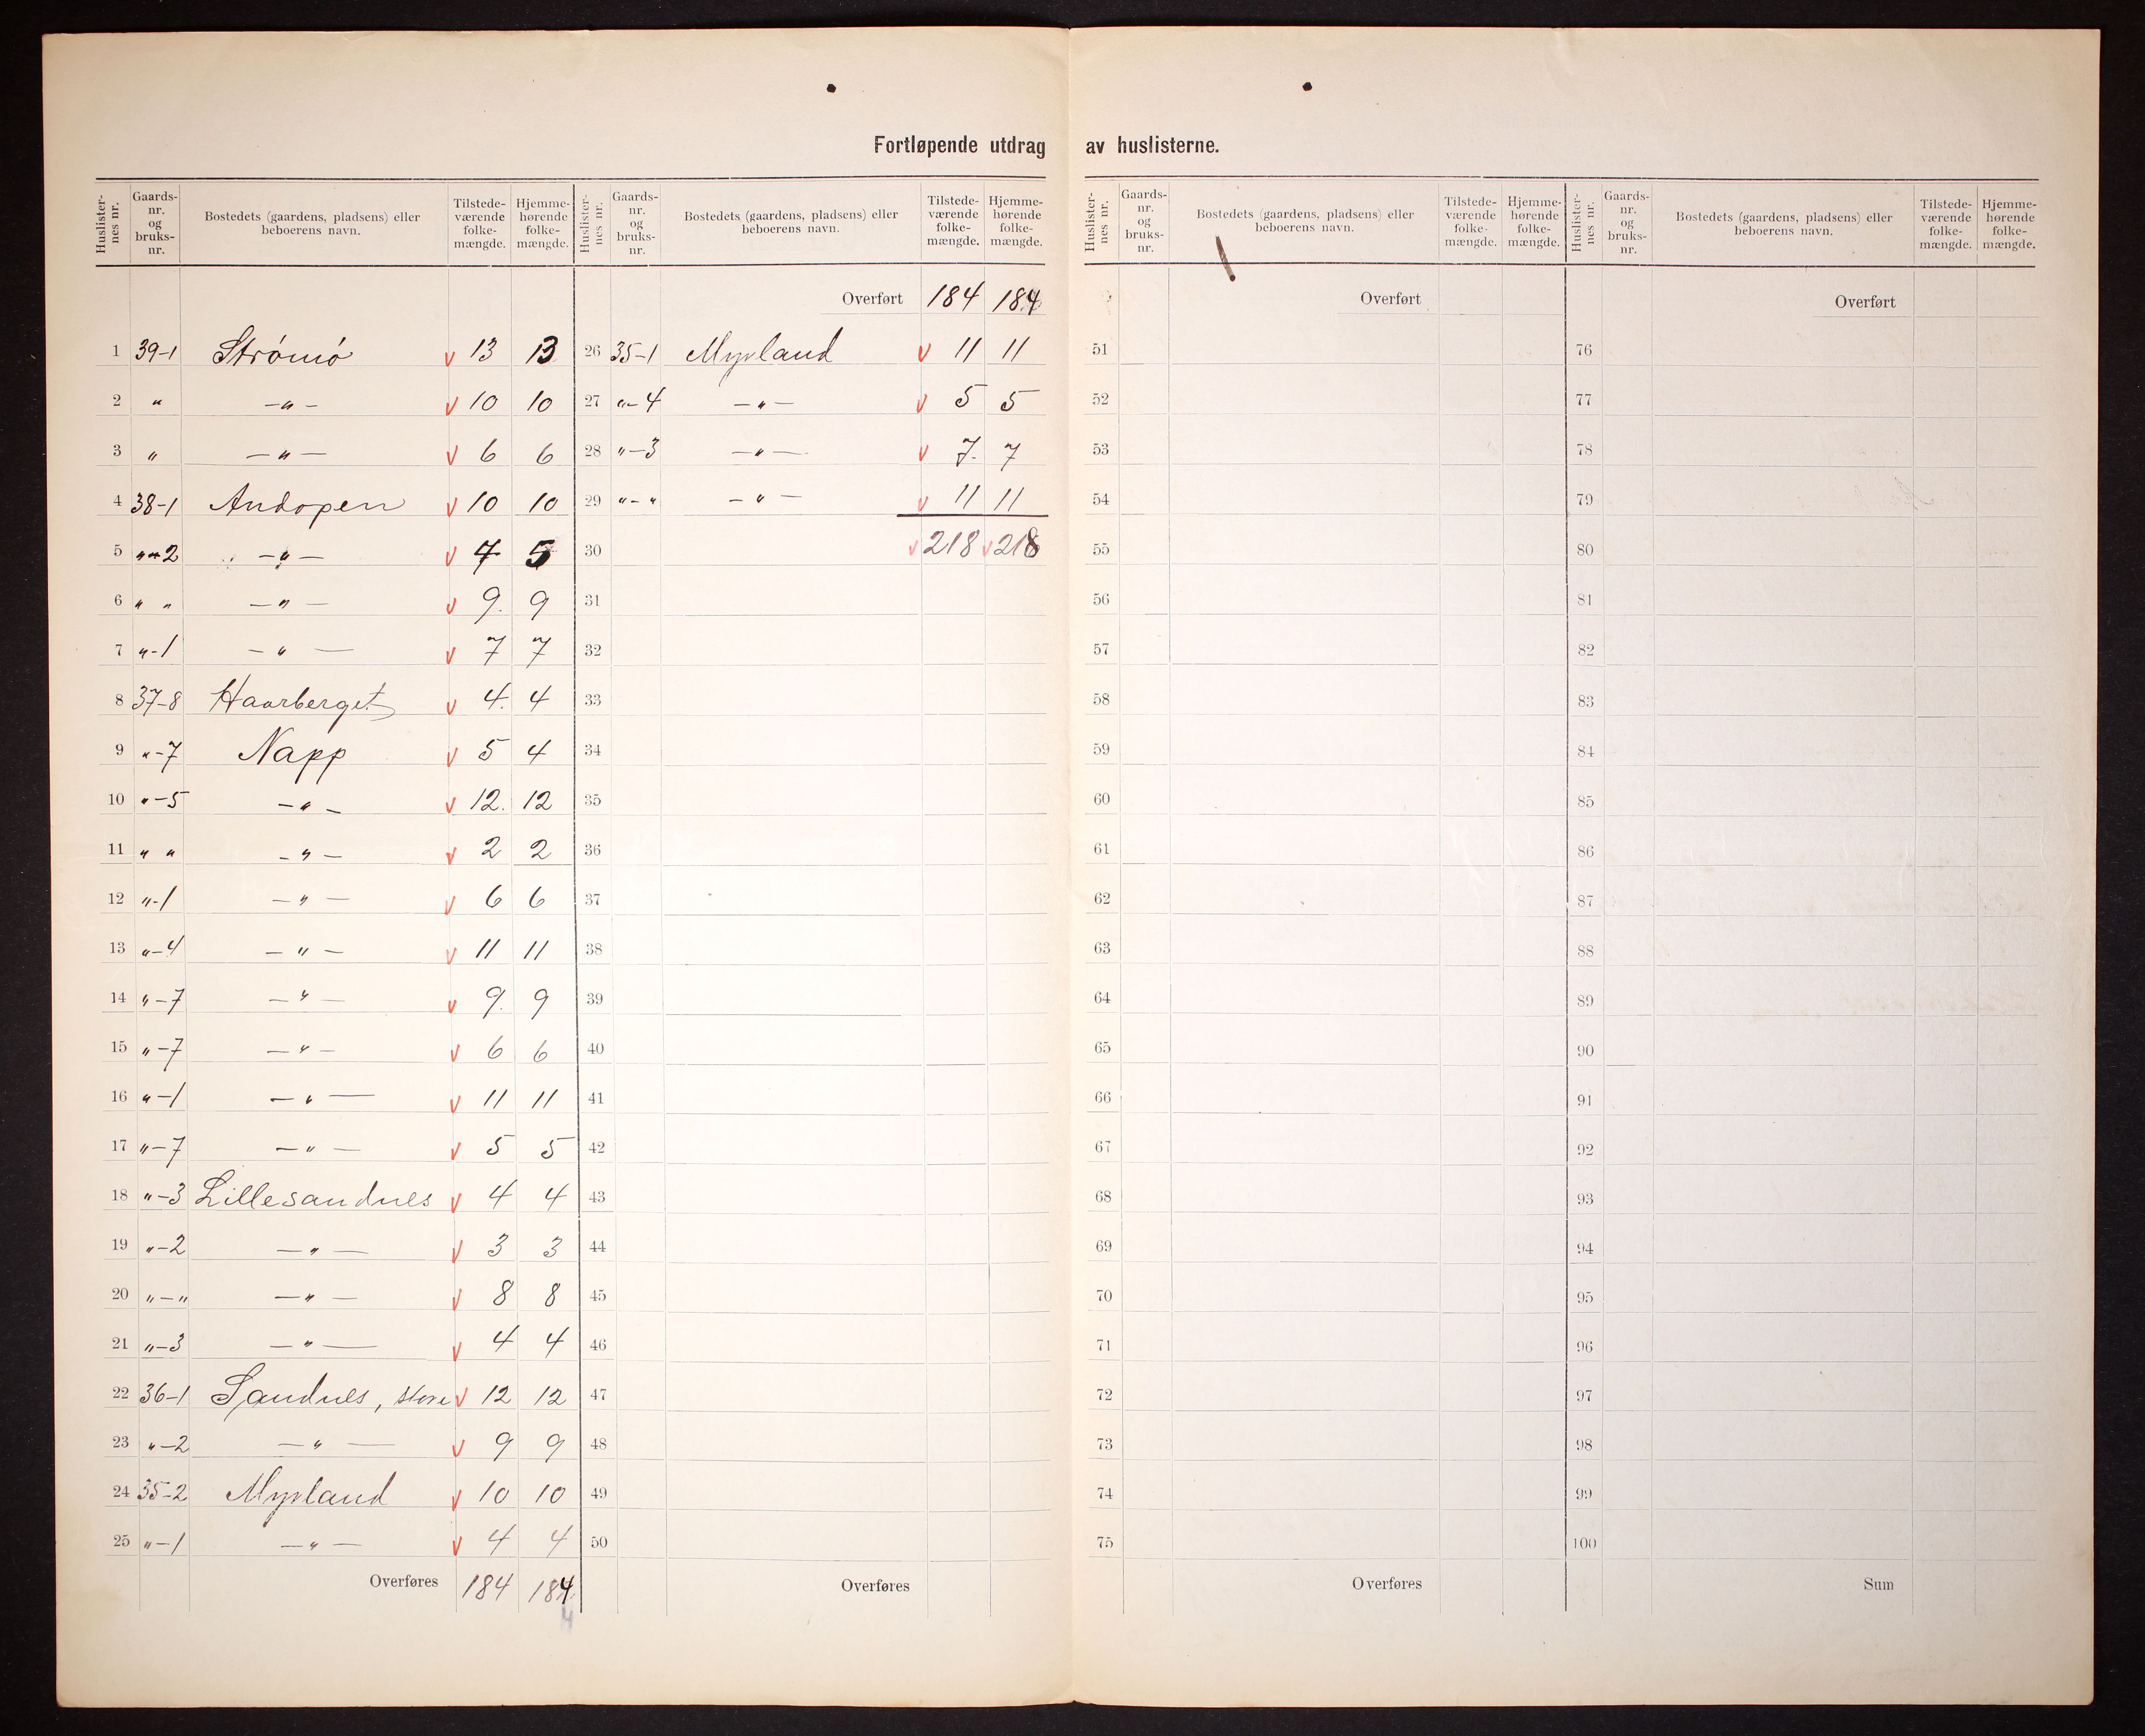 Fortløpende utdrag av huslisterne.
Huslisternes nr. Gaards-nr. og bruks-nr. Bostedets (gaardens, pladsens) eller beboerens navn. Tilstede-værende folke-mængde. Hjemme-hørende folke-mængde.
1 39-1 Strømø v 13 13
2 " -"- v 10 10
3 " -"- v 6 6
4 38-1 Andopen v 10 10
5 "-2 -"- v 7 5
6 " " -"- v 9. 9
7 "-1 -"- v 7 7
8 37-8 Haarberget v 4. 4
9 "-7 Napp v 5 4
10 "-5 -"- v 12. 12
11 " " -"- v 2 2
12 "-1 -"- v 6 6
13 "-4 -"- v 11 11
14 "-7 -"- v 9. 9
15 "-7 -"- v 6 6
16 "-1 -"- v 11 11
17 "-7 -"- v 5 5
18 "-3 Lillesandnes v 4 4
19 "-2 -"- v 3 3
20 "-" -"- v 8 8
21 "-3 -"- v 4 4
22 36-1 Sandnes, store v 12 12
23 "-2 -"- v 9 9
24 35-2 Myrland v 10 10
25 "-1 -"- v 4 4
Overføres 184 184
4
Huslisternes nr. Gaards-nr. og bruks-nr. Bostedets (gaardens, pladsens) eller beboerens navn. Tilstede-værende folke-mængde. Hjemme-hørende folke-mængde.
Overført 184 184
26 35-1 Myrland v 11 11
27 "-4 -"- v 5 5
28 "-3 -"- v 7. 7
29 "-" -"- v 11 11
30 v 218 v 218
31
32
33
34
35
36
37
38
39
40
41
42
43
44
45
46
47
48
49
50
Overføres
Huslisternes nr. Gaards-nr. og bruks-nr. Bostedets (gaardens, pladsens) eller beboerens navn. Tilstede-værende folke-mængde. Hjemme-hørende folke-mængde.
Overført
51
52
53
54
55
56
57
58
59
60
61
62
63
64
65
66
67
68
69
70
71
72
73
74
75
Overføres
Huslisternes nr. Gaards-nr. og bruks-nr. Bostedets (gaardens, pladsens) eller beboerens navn. Tilstede-værende folke-mængde. Hjemme-hørende folke-mængde.
Overført
76
77
78
79
80
81
82
83
84
85
86
87
88
89
90
91
92
93
94
95
96
97
98
99
100
Sum